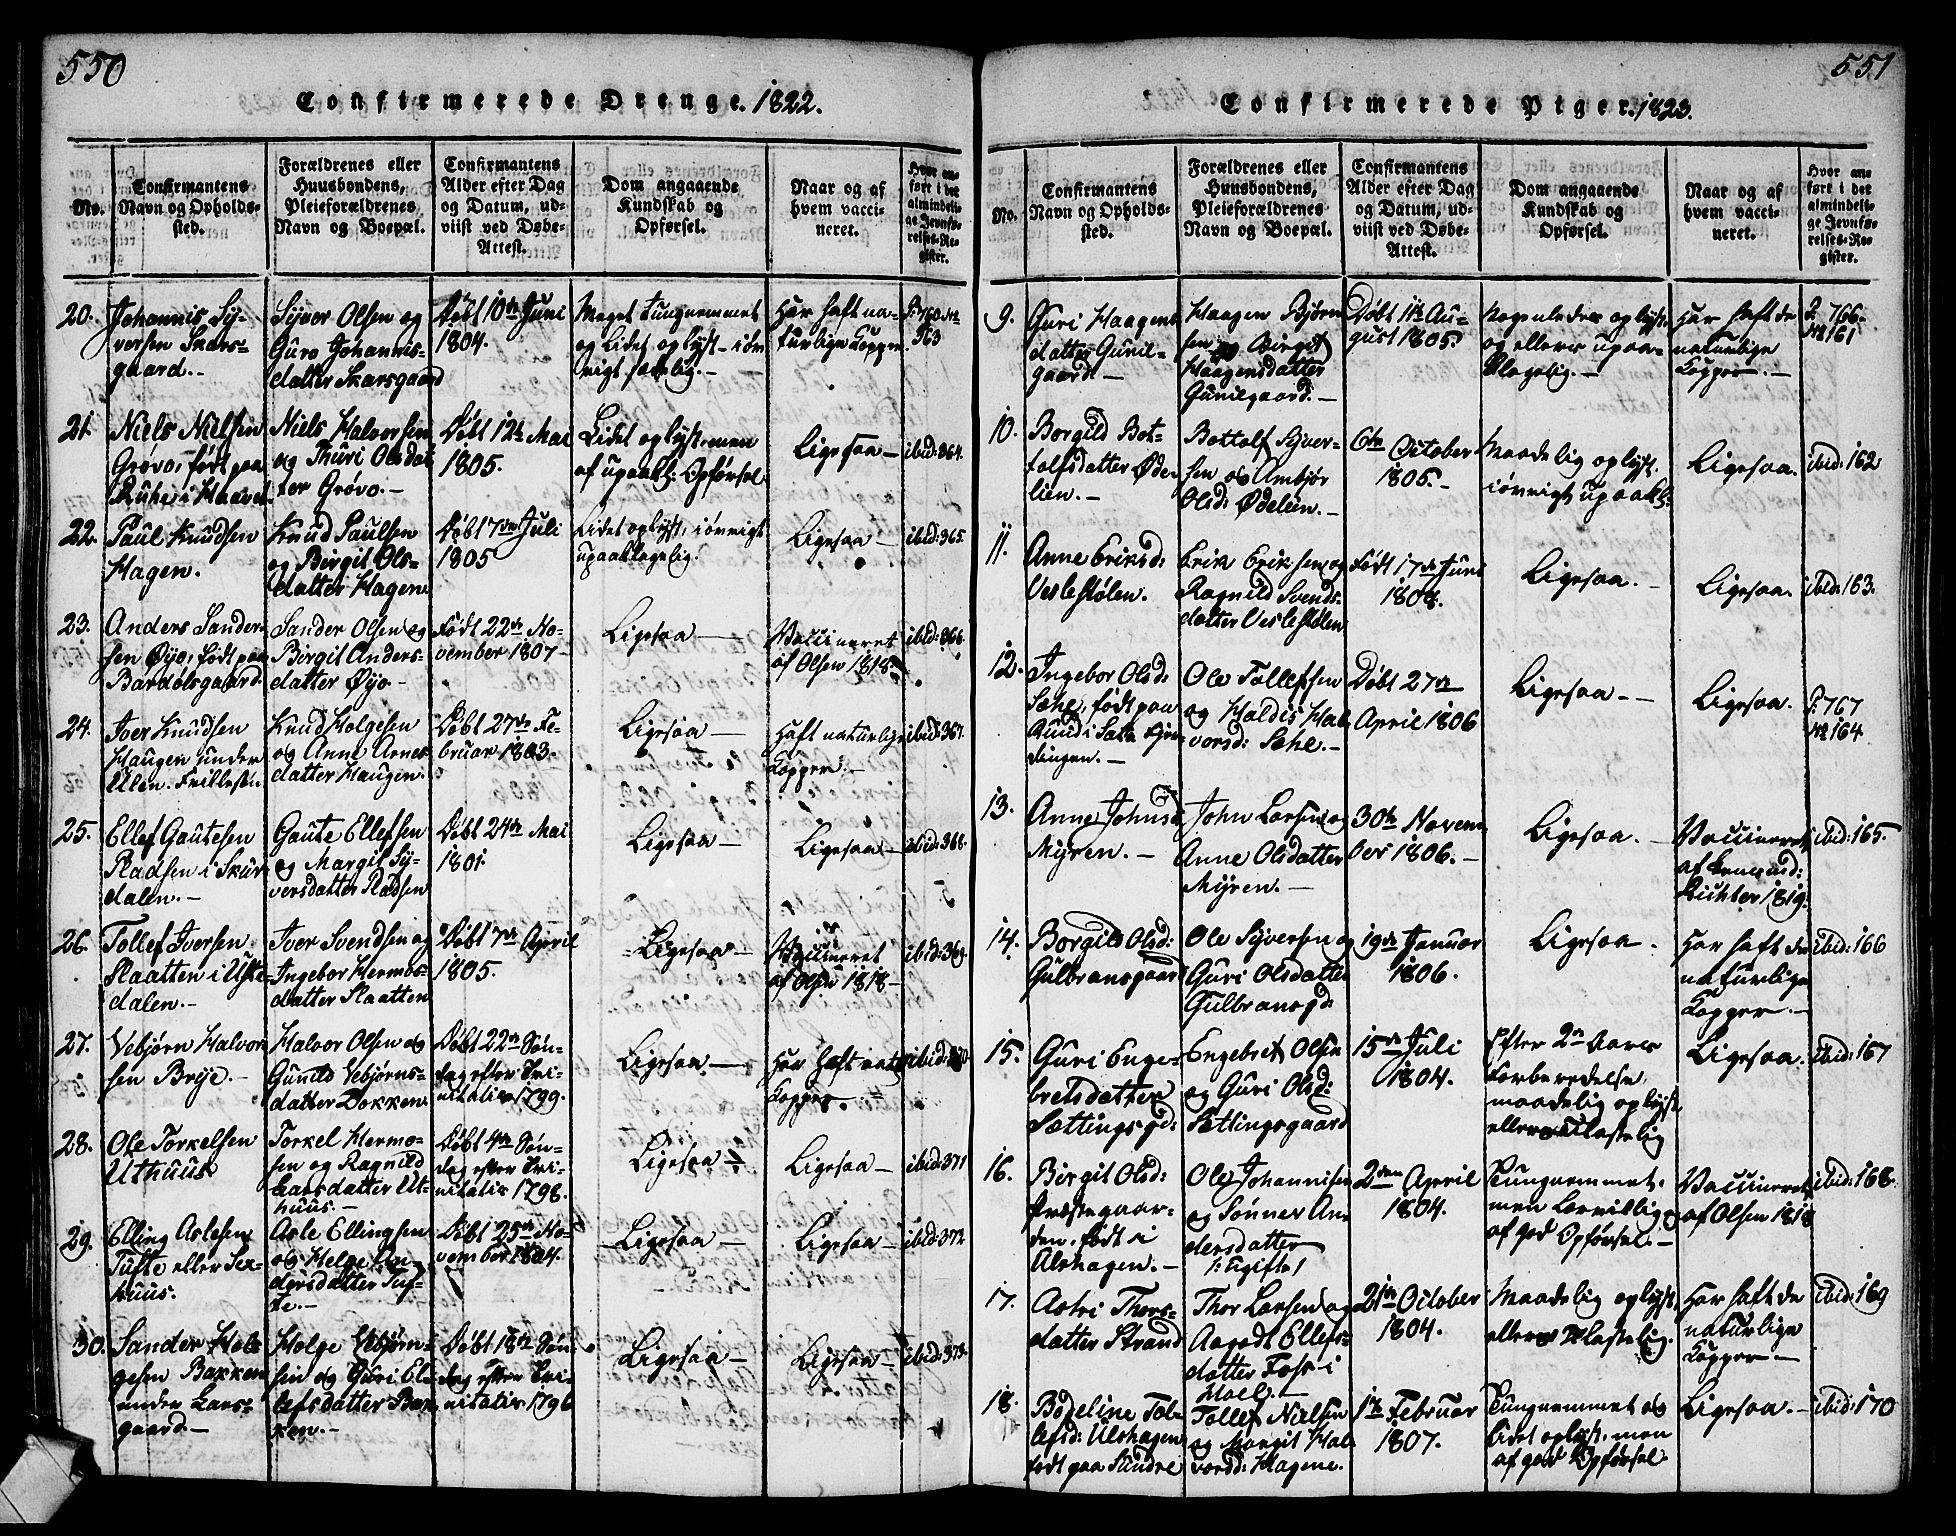 550
Confirmerede Drenge. 1822.
No.
Confirmantens
Navn og Opholds-
sted.
Forældrenes eller
Huusbondens,
Pleieforældrenes
Navn og Boepæl.
Confirmantens
Alder efter Dag
og Datum, ud-
viist ved Døbe-
Attest.
Dom angaaende
Kundskab og
Opførsel.
Naar og af
hvem vacci-
neret.
Hvor an-
ført i det
almindeli-
ge Jevnfø-
relses-Re-
gister.
20.
Johannis Sy-
versen Skars-
gaard.-
Syver Olsen og
Guro Johannis-
datter Skarsgaard
Døbt 10de Juni
1804.
Meget tungnemmet
og Lidet oplyst- iøv-
rigt sædelig.-
Har haft na-
turlige Kopper
P. 760 No
363
21.
Niels Nielsen
Grøvo, født paa
Ruhe i Haavel
Niels Halvorsen
og Thuri Olsdat-
ter Grøvo.-
Døbt 12te Mai
1805.
Lidet oplyst, men
af upaakl: Opførsel
Ligesaa-
ibid: 364.
22.
Paul Knudsen
Hagen.
Knud Paulsen
og Birgit Ols-
datter Hagen
Døbt 7de Juli
1805
Lidet oplyst, iøvrigt
upaaklagelig.
Ligesaa-
ibid: 365.
23.
Anders Sander-
sen Øyo, født paa
Bardolsgaard
Sander Olsen og
Birgit Anders-
datter Øyo-
Født 22de No-
vember 1807-
Ligesaa-
Vaccineret
af Olsen 1818.
ibid: 366.
24.
Iver Knudsen
Haugen under
Ulen. Frillesøn
Knud Holgesen
og Anne Arnes-
datter Haugen.
Døbt 27de Fe-
bruar 1803.
Ligesaa-
Haft naturlige
Kopper.-
ibid: 367.
25.
Ellef Gautesen
Pladsen i Skur-
dalen.-
Gaute Ellefsen
og Margit Sy-
versdatter Pladsen
Døbt 24de Mai
1801
Ligesaa-
Ligesaa-
ibid: 368.
26.
Tollef Iversen
Slaatten i Uste-
dalen.-
Iver Svendsen og
Ingebor Hermos-
datter Slaatten
Døbt 7de April
1805.
Ligesaa-
Vaccineret
af Olsen 1818-
ibid: 369.
27.
Vebjørn Halvor-
sen Brye.-
Halvor Olsen og
Gunild Vebjørns-
datter Dokken
Døbt 22de Søn-
dag efter Tri-
nitatis 1799.
Ligesaa.-
Har haft nat:
Kopper.
ibid: 370.
28.
Ole Torkelsen
Uthuus
Torkel Hermo-
sen og Ragnild
Larsdatter Ut-
huus.-
Døbt 4de Søn-
dag efter Tri-
nitatis 1798.
Ligesaa
Ligesaa-
ibid: 371
29.
Elling Aslesen
Tufte eller Sex-
huus.
Asle Ellingsen
og Helge An-
dersdatter Tuf-
te.-
Døbt 25de No-
vember 1804.
Ligesaa-
Ligesaa-
ibid: 372.
30.
Sander Hol-
gesen Bakken
under Lars-
gaard-
Holge Vebjørn-
sen og Guri El-
lefsdatter Bak-
ken.-
Døbt 18de Søn-
dag efter Tri-
nitatis 1796
Ligesaa-
Ligesaa-
ibid: 373.
551
Confirmerede Piger. 1823.
No.
Confirmantens
Navn og Opholds-
sted.
Forældrenes eller
Huusbondens,
Pleieforældrenes
Navn og Boepæl.
Confirmantens
Alder efter Dag
og Datum, ud-
viist ved Døbe-
Attest.
Dom angaaende
Kundskab og
Opførsel.
Naar og af
hvem vacci-
neret.
Hvor an-
ført i det
almindeli-
ge Jevnfø-
relses-Re-
gister.
9.
Guri Haagens
datter Gunil-
gaard.-
Haagen Bjørn
sen og Birgit
Haagensdatter
Gunilgaard.-
Døbt 11te Au-
gust 1805.
Nogenledes oplyst
og ellers upaa-
klagelig.-
Har haft de
naturlige
Kopper.-
P. 766.
No 161
10.
Borgild Bot-
tolfsdatter Øde-
lien.-
Bottolf Syver-
sen og Ambjør
Olsd: Ødelien.-
6te October
1805.-
Maadelig oplyst.
iøvrigt upaakl:
Ligesaa.
ibid: 162
11.
Anne Eriksd:
Veslestølen.
Erik Eriksen og
Ragnild Svends-
datter Veslestølen
Født 17de Juni
1808.
Ligesaa.-
Ligesaa.
ibid: 163.
12.
Ingebor Olsd:
Sehe, født paa
Rund i Sata Gjen-
dingen.-
Ole Tollefsen
og Haldis Hal-
vorsd: Sehe.-
Døbt 27de
April 1806
Ligesaa-
Ligesaa.
P. 767
No 164
13.
Anne Johnsd:
Myren.-
John Larsen og
Anne Olsdatter
Myren.-
30te Novem-
ber 1806.-
Ligesaa.-
Vaccineret
af
Richter 1819.
ibid: 165.
14.
Borgild Olsd:
Gulbransgaard
Ole Syversen og
Guri Olsdatter
Gulbransgd:
19de Januar
1806.
Ligesaa.
Har haft de
naturlige
Kopper.-
ibid: 166
15.
Guri Enge-
bretsdatter
Sættingsgd:
Engebret Olsen
og Guri Olsd:
Sættingsgaard
15de Juli
1804.
Efter 2de Aars
Forberedelse
maadelig oplyst,
ellers ulastelig
Ligesaa.
ibid: 167
16.
Birgit Olsd:
Præstegaar-
den, født i
Alshagen.-
Ole Johannisen
og Sønnev An-
dersdatter
/: Ugift :/
2den April
1804.
Tungnemmet.
men Lærvillig og
af god Opførsel.-
Vaccineret
af Olsen 1818
ibid: 168.
17.
Astri Thors-
datter Strand
Thor Larsen og
Aagodt Ellefs-
datter Foss i
Hoel.-
21de October
1804.
Maadelig oplyst
ellers ulastelig.
Har haft de
naturlige
Kopper-
ibid: 169
18.
Bodeline Tol-
lefsd: Ulshagen
født paa Sundre
Tollef Nielsen
og Margit Hal-
vorsd: Hagene.
1te Februar
1807.
Tungnemmet og
lidet oplyst, men
af god Opførsel.
Ligesaa.-
ibid: 170